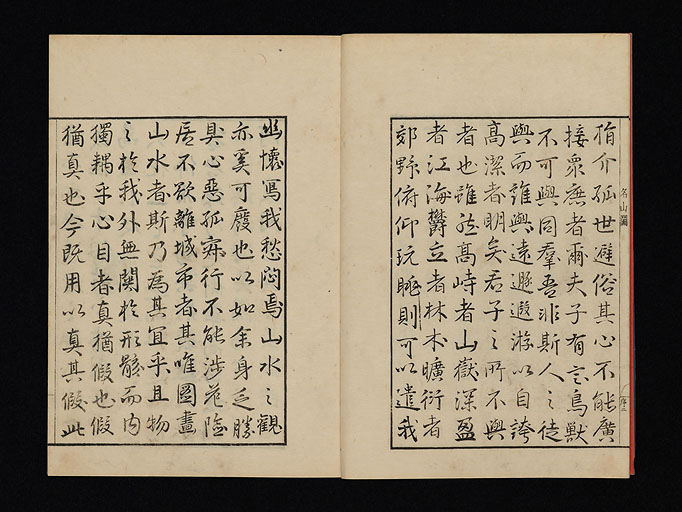 狷介孤世避俗其心不能廣
接衆庶者爾夫子有言鳥獸
不可與同羣吾非斯人之徒
與而誰與遠遯遐游以自誇
高潔者明矣君子之所不與
者也雖然高峙者山嶽深盈
者江海欝立者林木曠衍者
郊野俯仰玩眺則可以遣我
幽懷寫我愁悶焉山水之觀
亦奚可廢也以如余身乏勝
具心惡孤寂行不能涉危險
居不欲離城市者其唯圖畫
山水者斯乃為其宜乎且物
之於我外無關於形骸而内
獨耦乎心目者真猶假也假
猶真也今既用以真其假此
名山圖
序二